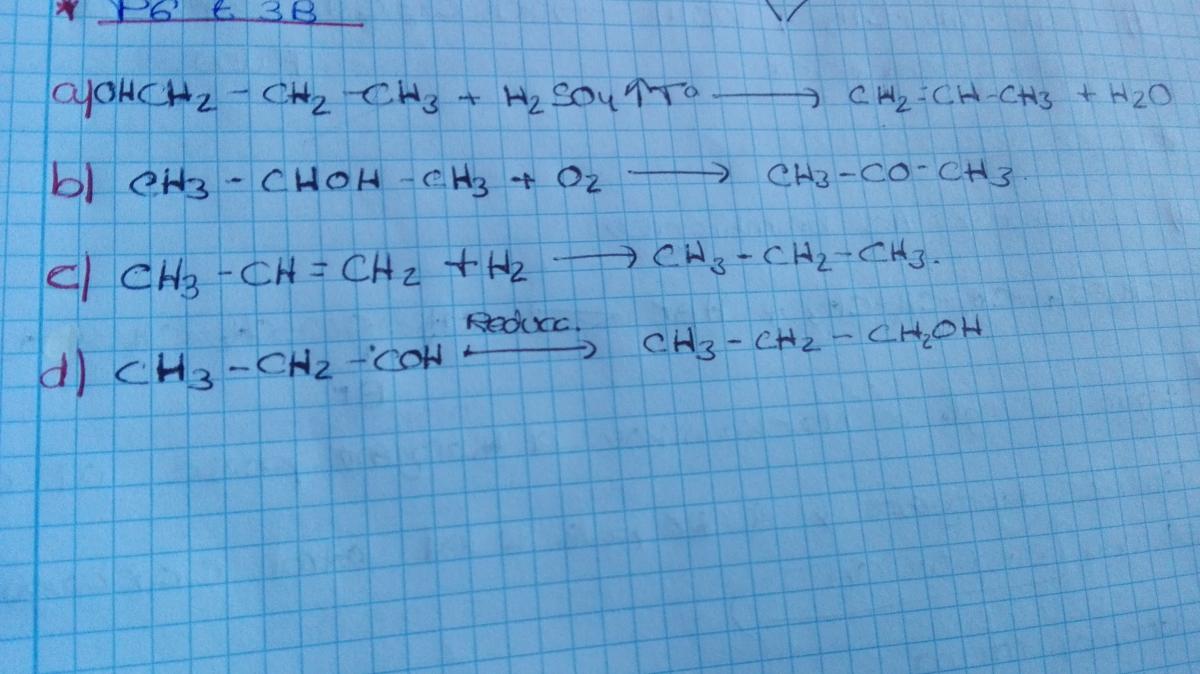 * P6 E 3B
a) OHCH2 - CH2 - CH3 + H2SO4 ↑Tª ⟶ CH2=CH-CH3 + H2O
b) CH3 - CHOH - CH3 + O2 ⟶ CH3-CO-CH3.
c) CH3 - CH = CH2 + H2 ⟶ CH3 - CH2 - CH3.
Reducc.
d) CH3 - CH2 - COH ⟶ CH3 - CH2 - CH2OH